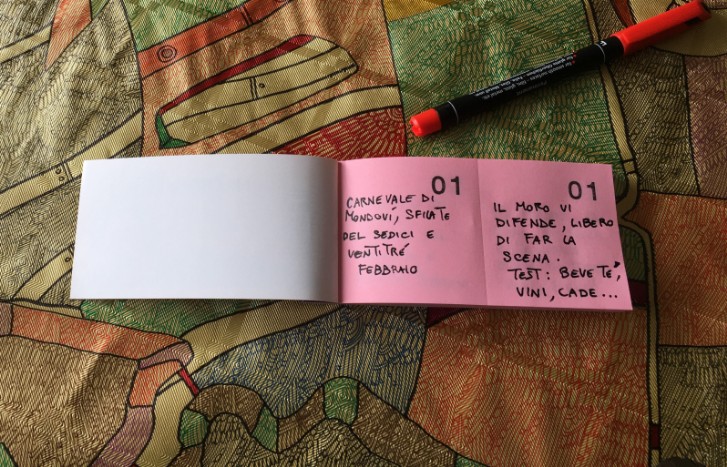 01
CARNEVALE DI
MONDOVÍ, SFILATE
DEL SEDICI E
VENTITRÉ
FEBBRAIO
01
IL MORO VI
DIFENDE, LIBERO
DI FAR LA
SCENA.
TEST: BEVE TÈ,
VINI, CADE...